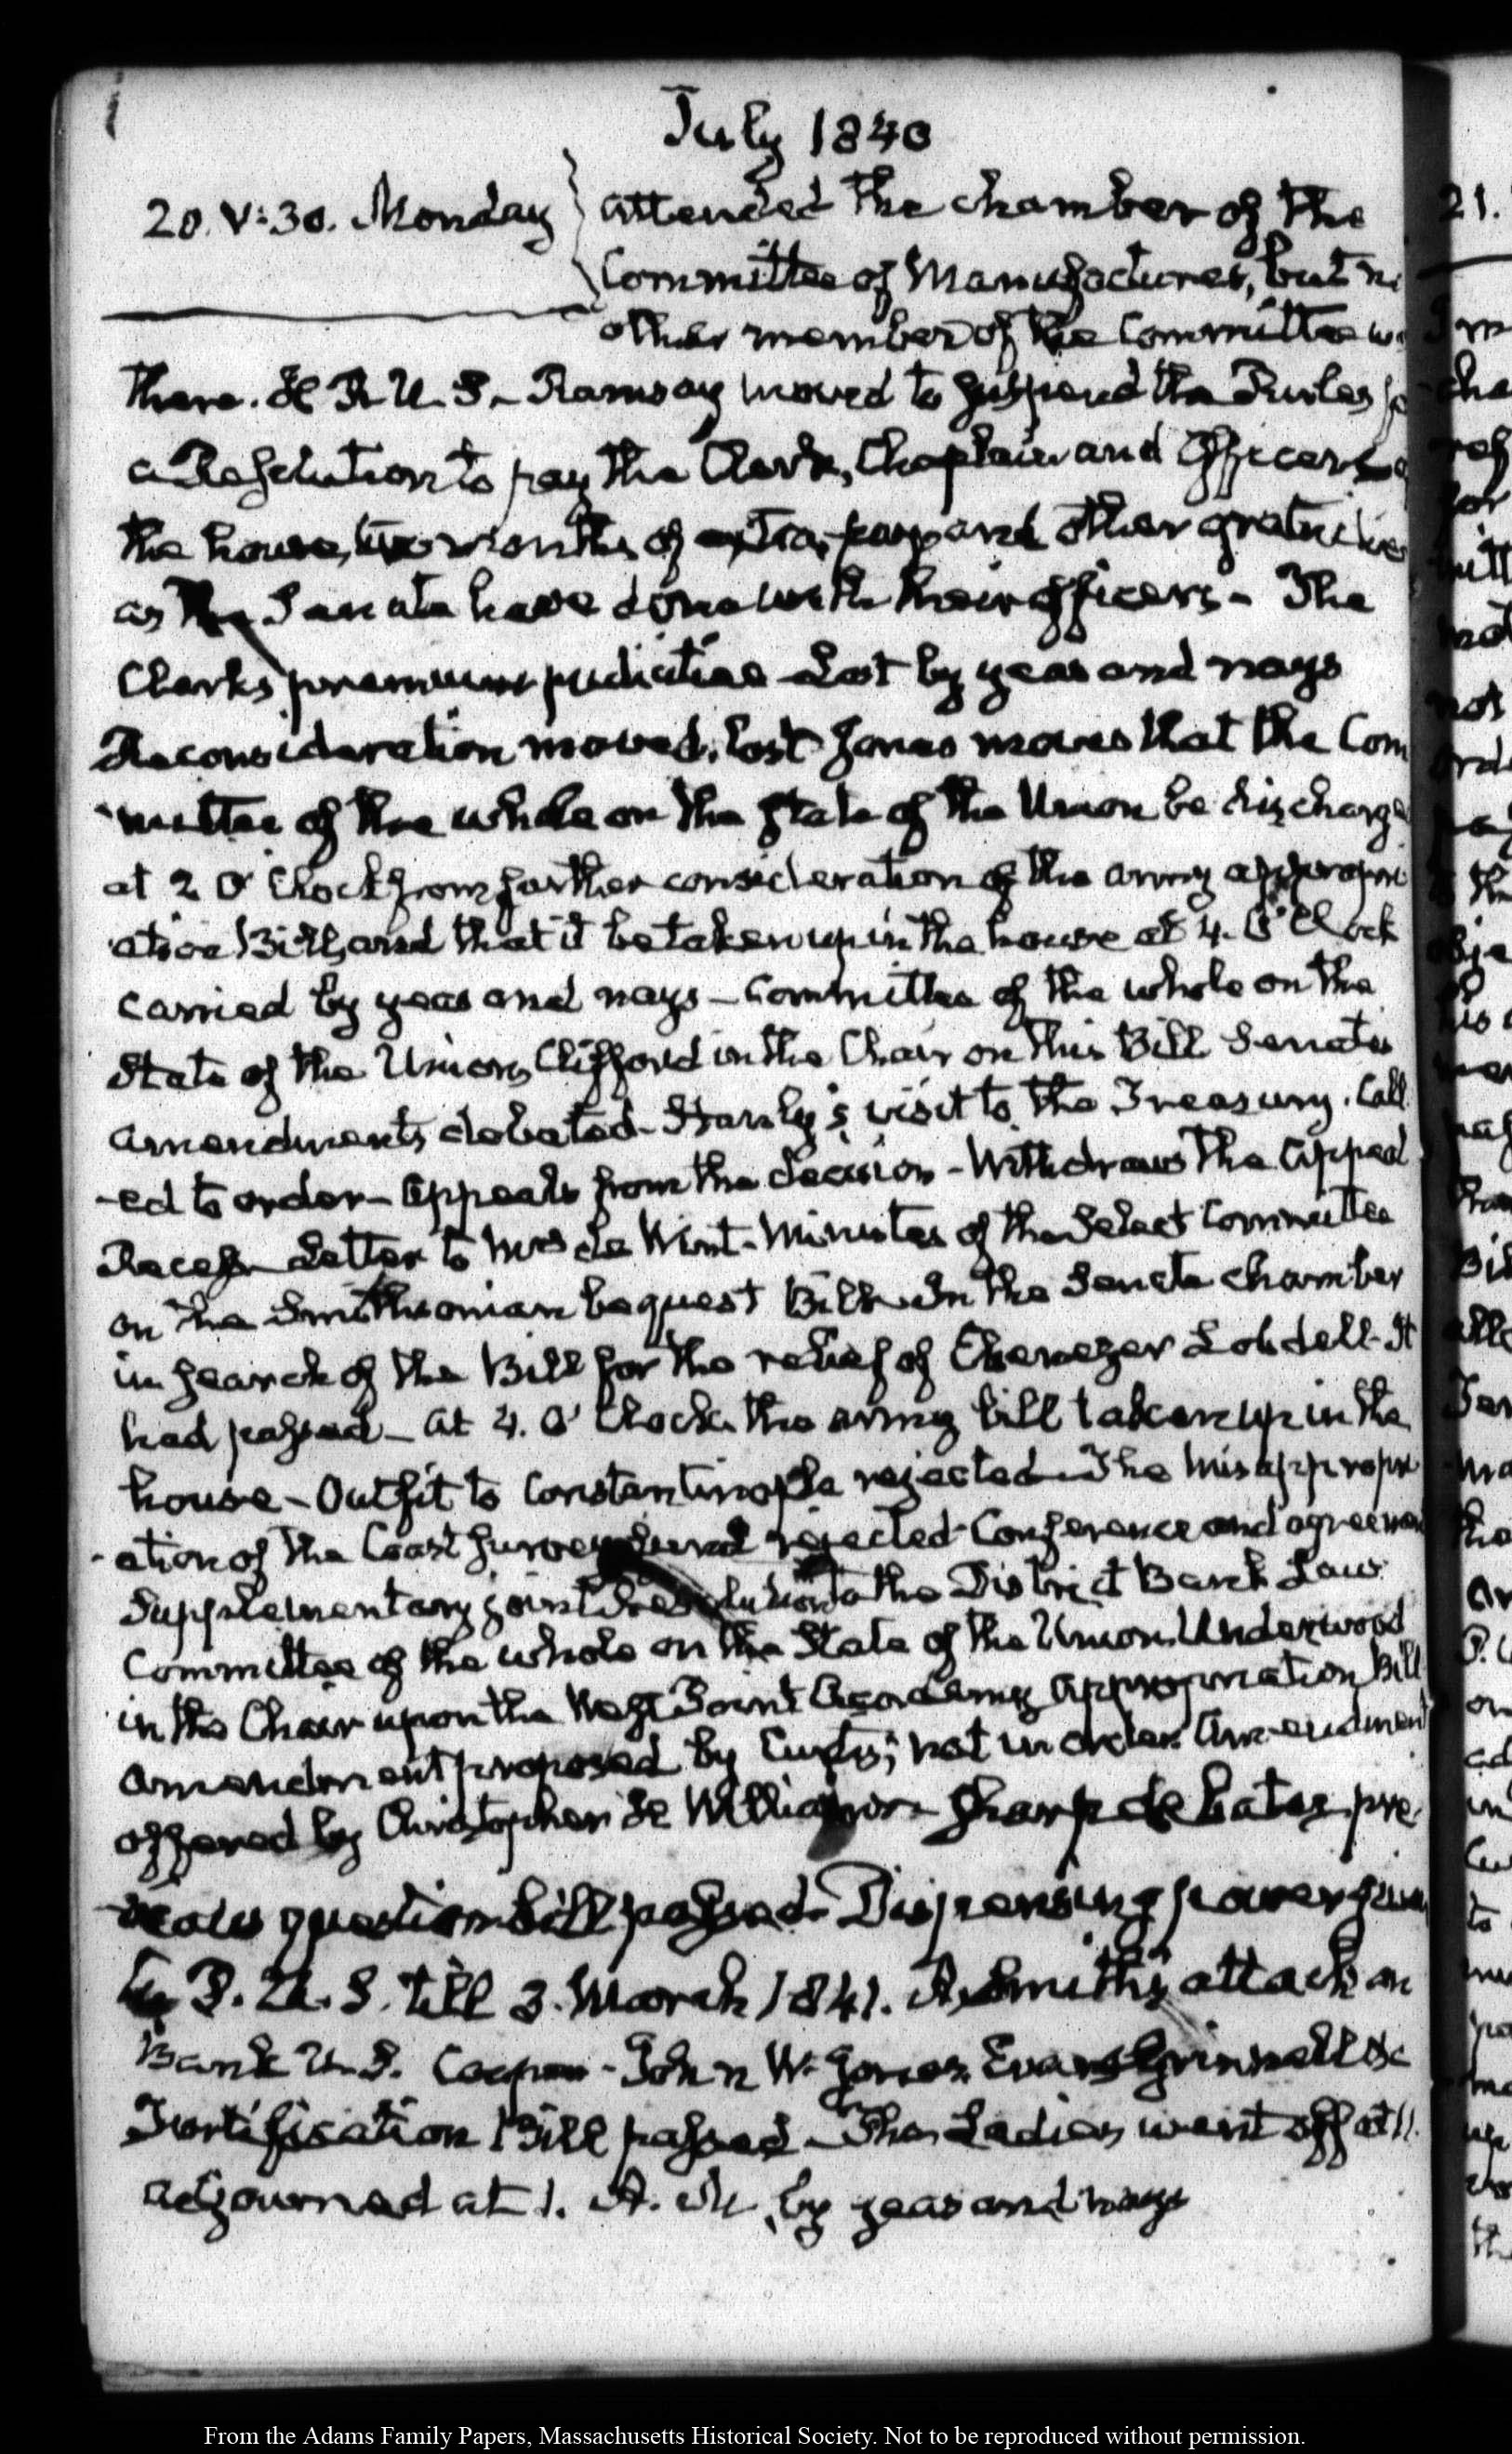 July 1840
20. V:30. Monday
Attended the chamber of the
Committee of Manufactures, but n
other member of the Committee w
there. H R U. S. Ramsay moved to suspend the Rules fo
a Resolution to pay the Clerks, Chaplain and Officers o
the house, two months of extra pay and other gratuities
as the Senate have done with their officers. The
Clerks premium pudicitiae. Lost by yeas and nays
Reconsideration moved, lost. Jones moves that the Com
mittee of the whole on the State of the Union be discharge
at 2 O'Clock from further consideration of the army appropri
ation Bill, and that it be taken up in the house at 4. O'Clock
carried by yeas and nays - Committee of the whole on the
State of the Union, Clifford in the Chair on this Bill Senates
Amendments debated. Stanly's visit to the Treasury. Call
-ed to order - Appeals from the decision - Withdraws the Appeal
Recess - Letter to Mrs de Wint. Minutes of the Select Committee
on the Smithsonian bequest Bill. In the Senate chamber
in search of the Bill for the relief of Ebenezer Lobdell. It
had passed - At 4. O'Clock. the army bill taken up in the
house - Outfit to Constantinople rejected. The misappropri
-ation of the Coast Survey fund rejected. Conference and agreemen
Supplementary joint Resolution to the District Bank Law
Committee of the whole on the State of the Union. Underwood
in the Chair upon the West Point Academy Appropriation Bill
Amendment proposed by Curtis; not in order. Amendment
offered by Christopher H Williams. Sharp debates. pre
-vious question bill passed. Dispensing power given
to P. U. S. till 3. March 1841. A. Smith's attack on
Bank U. S. Cooper - John W. Jones. Evans Grinnell &c
Fortification Bill passed - The Ladies went off at 11.
adjourned at 1. A. M. by yeas and nays
21.
From the Adams Family Papers, Massachusetts Historical Society. Not to be reproduced without permission.